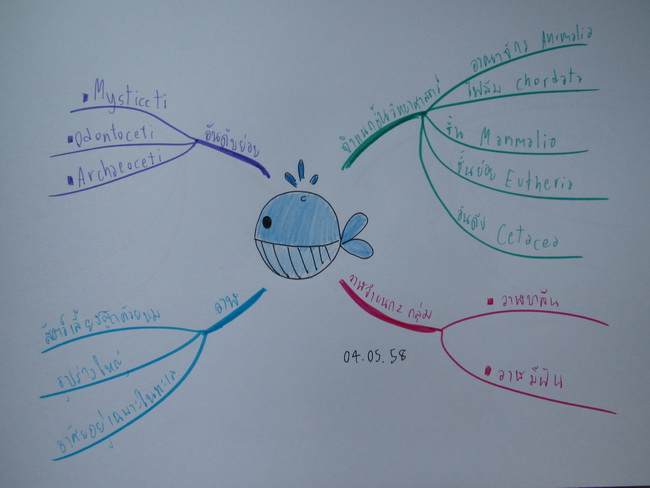 อันดับย่อย
Mysticeti
Odontoceti
Archaeoceti
จำแนกชั้นวิทยาศาสตร์
อาณาจักร Animalia
ไฟลัม chordata
ชั้น Mammalia
ชั้นย่อย Eutheria
อันดับ Cetacea
วาฬ
สัตว์เลี้ยงลูกด้วยนม
รูปร่างใหญ่
อาศัยอยู่เฉพาะในทะเล
วาฬจำแนก 2 กลุ่ม
วาฬบาลีน
วาฬมีฟัน
04.05.58